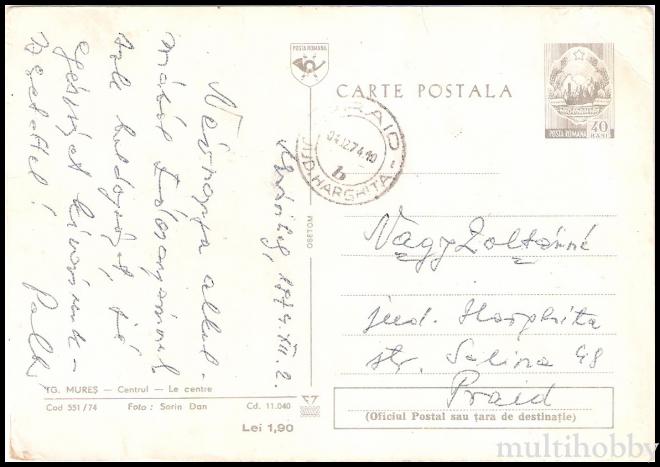 POSTA ROMANA
CARTE POSTALA
POSTA ROMANA 40 BANI
PRAID
04.12.74.10
b
JUD. HARGHITA
Névnapja alkal-
mából
jó
egészséget kivánunk
szeretettel!
1974. XII. 2.
OBETCM
Nagy Zoltánné
jud. Harghita
str. Salina 48
Praid
(Oficiul Postal sau țara de destinație)
TG. MUREȘ — Centrul — Le centre
Cod 551/74 Foto: Sorin Dan Cd. 11.040
Lei 1,90
multihobby